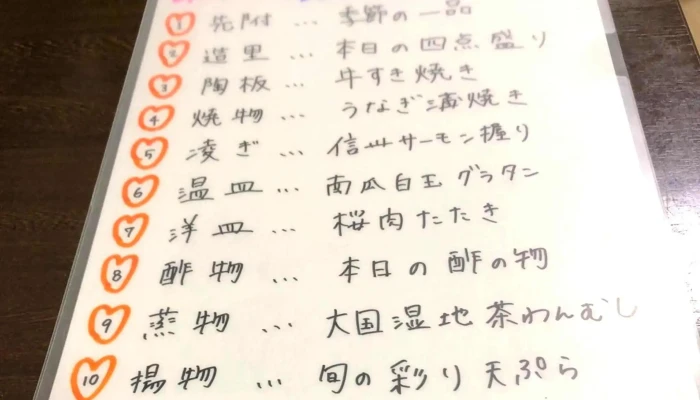 1 先附 … 季節の一品
2 造里 … 本日の四点盛り
3 陶板 … 牛すき焼き
4 焼物 … うなぎ蒲焼き
5 凌ぎ … 信州サーモン握り
6 温皿 … 南瓜白玉グラタン
7 洋皿 … 桜肉たたき
8 酢物 … 本日の酢の物
9 蒸物 … 大国湿地茶わんむし
10 揚物 … 旬の彩り天ぷら